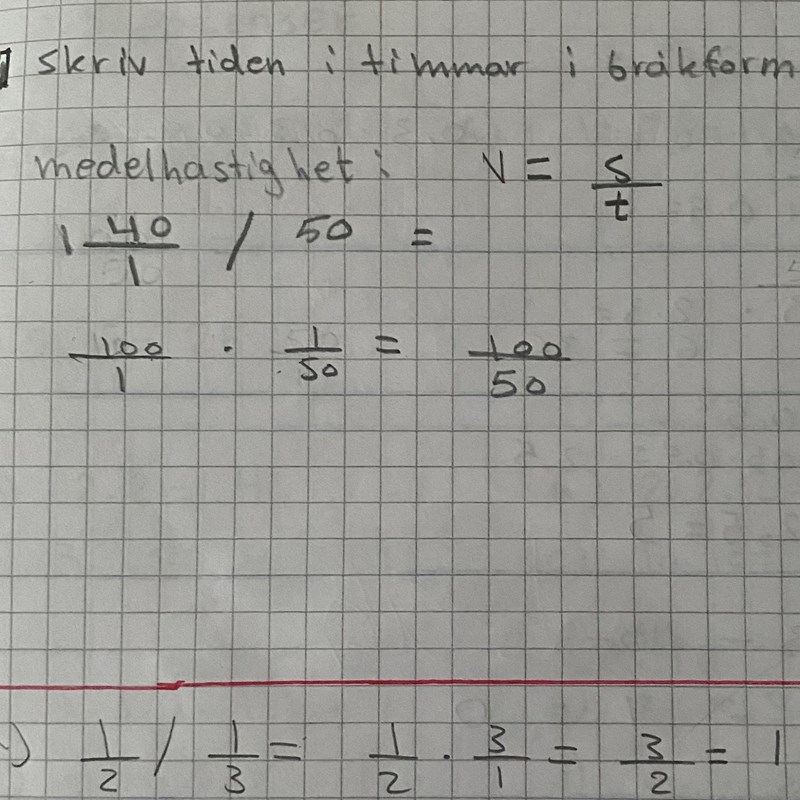 skriv tiden i timmar i bråkform
medelhastighet: V = s/t
1 40/1 / 50 =
100/1 · 1/50 = 100/50
) 1/2 / 1/3 = 1/2 · 3/1 = 3/2 = 1